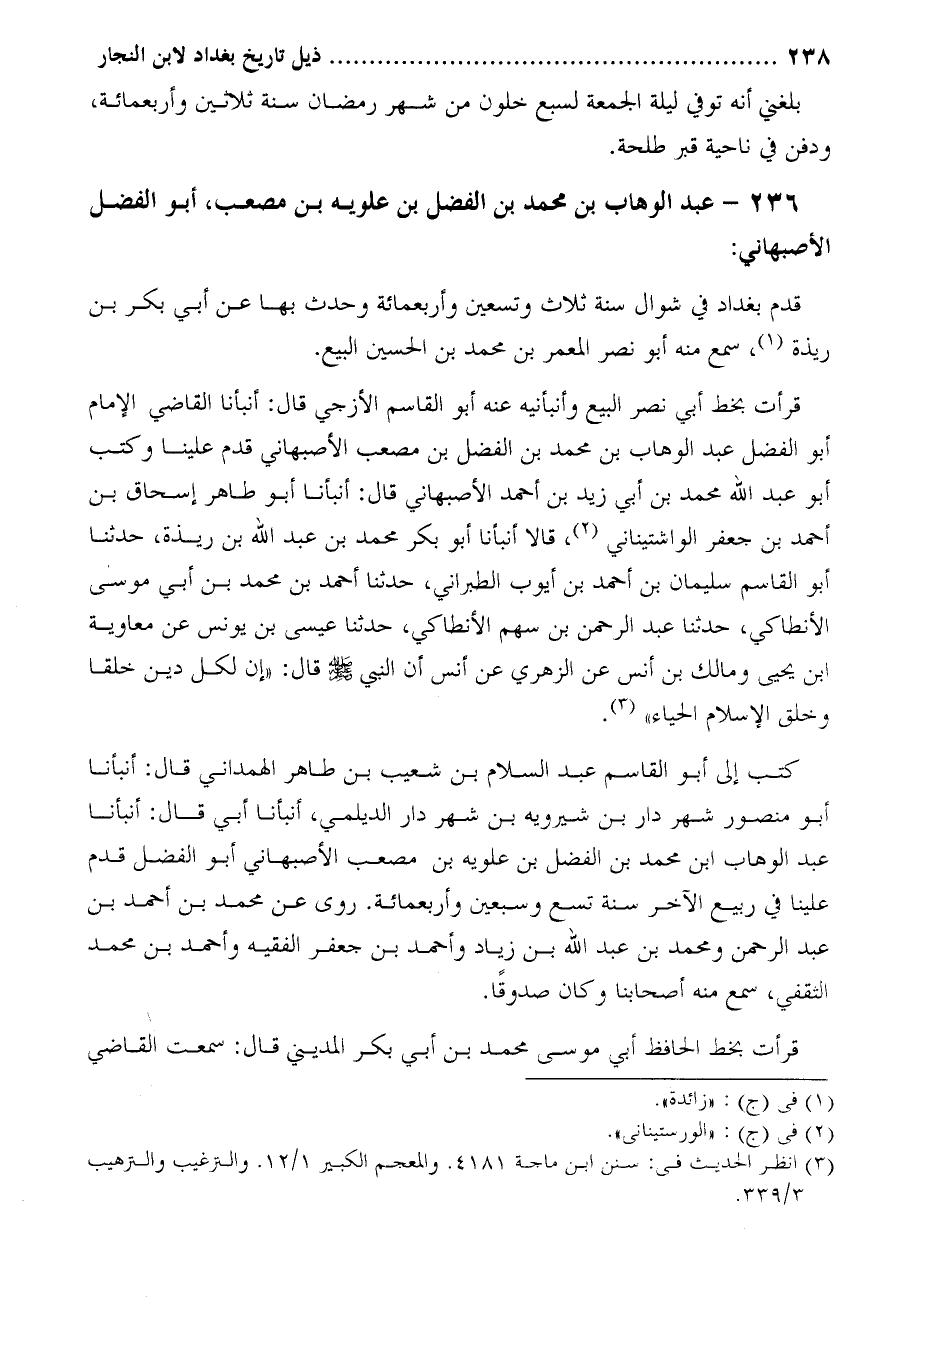 ٢٣٨ ........................................................ ذيل تاريخ بغداد لابن النجار
بلغني أنه توفي ليلة الجمعة لسبع خلون من شهر رمضان سنة ثلاثين وأربعمائة،
ودفن في ناحية قبر طلحة.
٢٣٦ – عبد الوهاب بن محمد بن الفضل بن علويه بن مصعب، أبو الفضل
الأصبهاني:
قدم بغداد في شوال سنة ثلاث وتسعين وأربعمائة وحدث بها عن أبي بكر بن
ريذة (١)، سمع منه أبو نصر المعمر بن محمد بن الحسين البيع.
قرأت بخط أبي نصر البيع وأنبأنيه عنه أبو القاسم الأزجي قال: أنبأنا القاضي الإمام
أبو الفضل عبد الوهاب بن محمد بن الفضل بن مصعب الأصبهاني قدم علينا وكتب
أبو عبد الله محمد بن أبي زيد بن أحمد الأصبهاني قال: أنبأنا أبو طاهر إسحاق بن
أحمد بن جعفر الواشتيناني (٢)، قالا أنبأنا أبو بكر محمد بن عبد الله بن ريذة، حدثنا
أبو القاسم سليمان بن أحمد بن أيوب الطبراني، حدثنا أحمد بن محمد بن أبي موسى
الأنطاكي، حدثنا عبد الرحمن بن سهم الأنطاكي، حدثنا عيسى بن يونس عن معاوية
ابن يحيى ومالك بن أنس عن الزهري عن أنس أن النبي ﷺ قال: «إن لكل دين خلقا
وخلق الإسلام الحياء» (٣).
كتب إلى أبو القاسم عبد السلام بن شعيب بن طاهر الهمداني قال: أنبأنا
أبو منصور شهر دار بن شيرويه بن شهر دار الديلمي، أنبأنا أبي قال: أنبأنا
عبد الوهاب ابن محمد بن الفضل بن علويه بن مصعب الأصبهاني أبو الفضل قدم
علينا في ربيع الآخر سنة تسع وسبعين وأربعمائة. روى عن محمد بن أحمد بن
عبد الرحمن ومحمد بن عبد الله بن زياد وأحمد بن جعفر الفقيه وأحمد بن محمد
الثقفي، سمع منه أصحابنا وكان صدوقًا.
قرأت بخط الحافظ أبي موسى محمد بن أبي بكر المديني قال: سمعت القاضي
(١) فى (ج) : «زائدة».
(٢) فى (ج) : «الورستينانى».
(٣) انظر الحديث فى: سنن ابن ماجة ٤١٨١. والمعجم الكبير ١٢/١. والترغيب والترهيب
٣٣٩/٣.